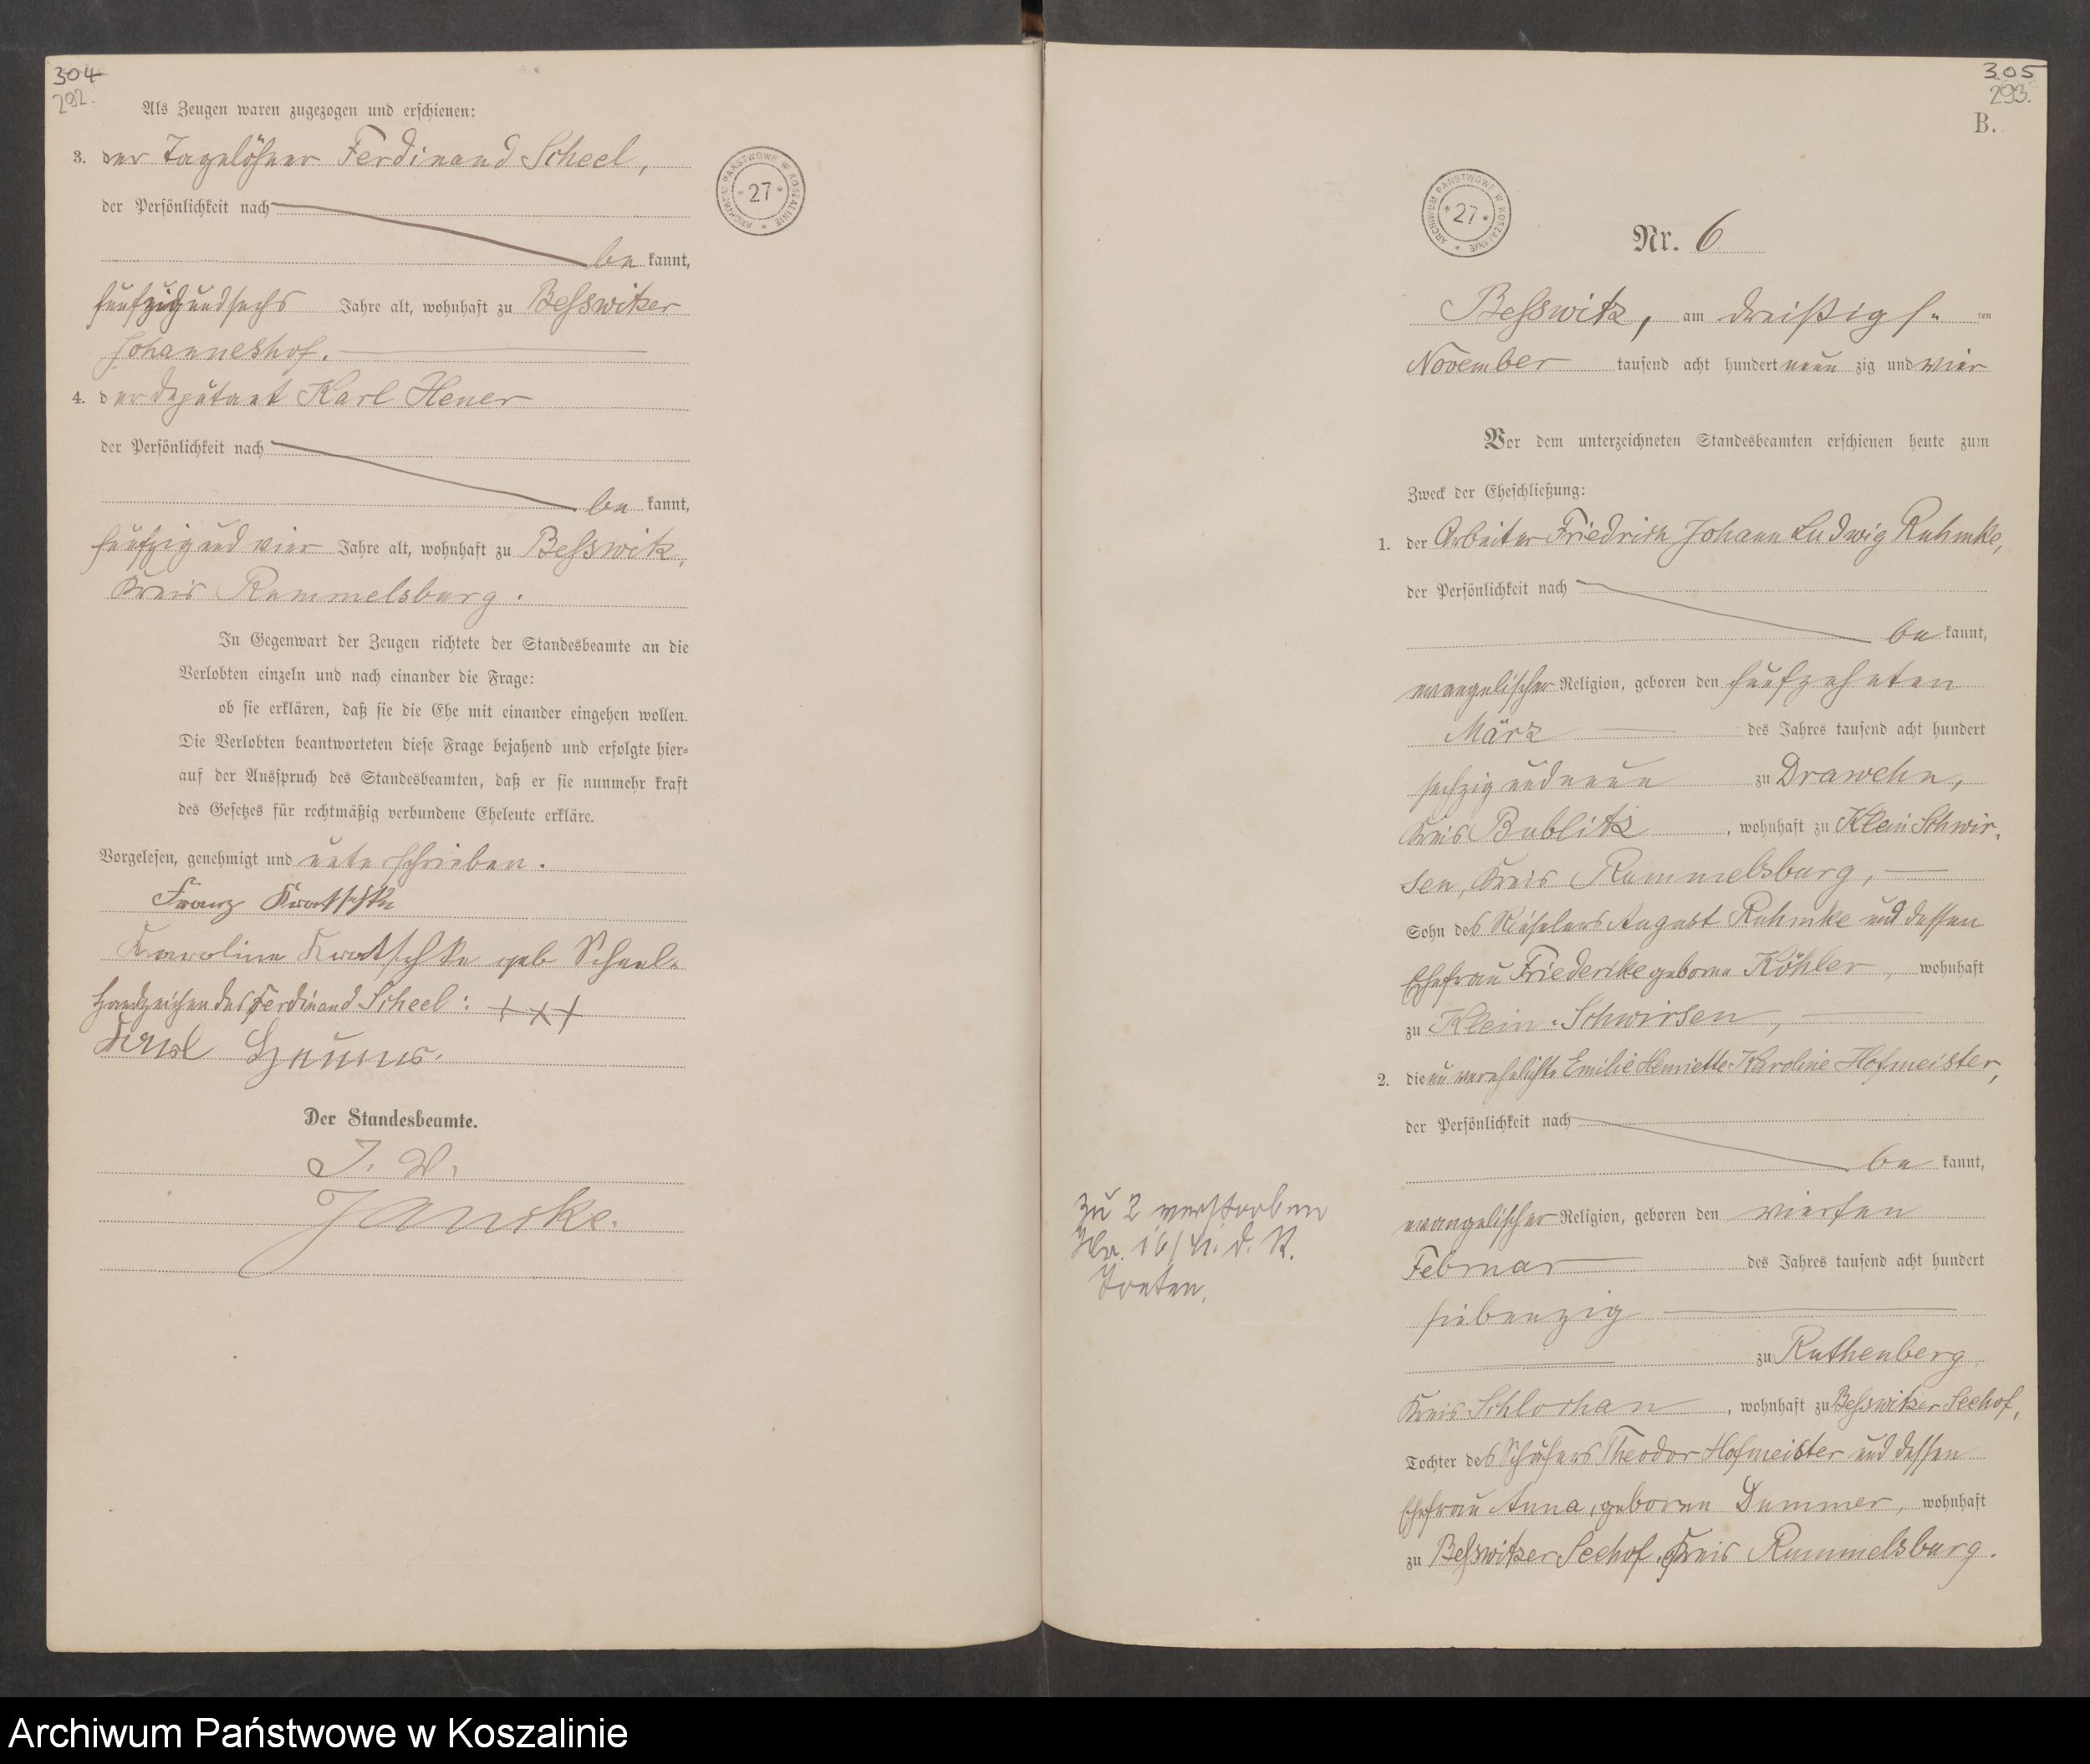 304
292.
Als Zeugen waren zugezogen und erschienen:
3. der Tagelöhner Ferdinand Scheel,
der Persönlichkeit nach
be kannt,
fünfzig und sechs Jahre alt, wohnhaft zu Besswitzer
Johanneshof.
4. der Deputant Karl Hener
der Persönlichkeit nach
be kannt,
fünfzig und vier Jahre alt, wohnhaft zu Besswitz,
Kreis Rummelsburg.
In Gegenwart der Zeugen richtete der Standesbeamte an die
Verlobten einzeln und nach einander die Frage:
ob sie erklären, daß sie die Ehe mit einander eingehen wollen.
Die Verlobten beantworteten diese Frage bejahend und erfolgte hier-
auf der Ausspruch des Standesbeamten, daß er sie nunmehr kraft
des Gesetzes für rechtmäßig verbundene Eheleute erkläre.
Vorgelesen, genehmigt und unterschrieben.
Franz Kwatschke
Karoline Kwatschke geb Scheel.
Handzeichen des Ferdinand Scheel: +++
Karl
Der Standesbeamte.
J. V.
Janske.
ARCHIWUM PAŃSTWOWE W KOSZALINIE
* 27 *
305
293.
B.
ARCHIWUM PAŃSTWOWE W KOSZALINIE
* 27 *
Nr. 6
Besswitz, am dreißigs- ten
November tausend acht hundert neun zig und vier
Vor dem unterzeichneten Standesbeamten erschienen heute zum
Zweck der Eheschließung:
1. der Arbeiter Friedrich Johann Ludwig Ruhmke,
der Persönlichkeit nach
be kannt,
evangelischer Religion, geboren den fünfzehnten
März des Jahres tausend acht hundert
sechzig und neun zu Drawehn,
Kreis Bublitz, wohnhaft zu Klein Schwir-
sen, Kreis Rummelsburg,
Sohn des August Ruhmke und dessen
Ehefrau Friederike geborne Köhler, wohnhaft
zu Klein-Schwirsen,
2. die unverehelichte Emilie Henriette Karoline Hofmeister,
der Persönlichkeit nach
be kannt,
evangelischer Religion, geboren den vierten
Februar des Jahres tausend acht hundert
siebenzig
zu Ruthenberg
Kreis Schlochau, wohnhaft zu Besswitzer Seehof,
Tochter des Schäfers Theodor Hofmeister und dessen
Ehefrau Anna, geboren Dummer, wohnhaft
zu Besswitzer Seehof, Kreis Rummelsburg.
zu 2 verstorben
16/41. d. St.
Archiwum Państwowe w Koszalinie